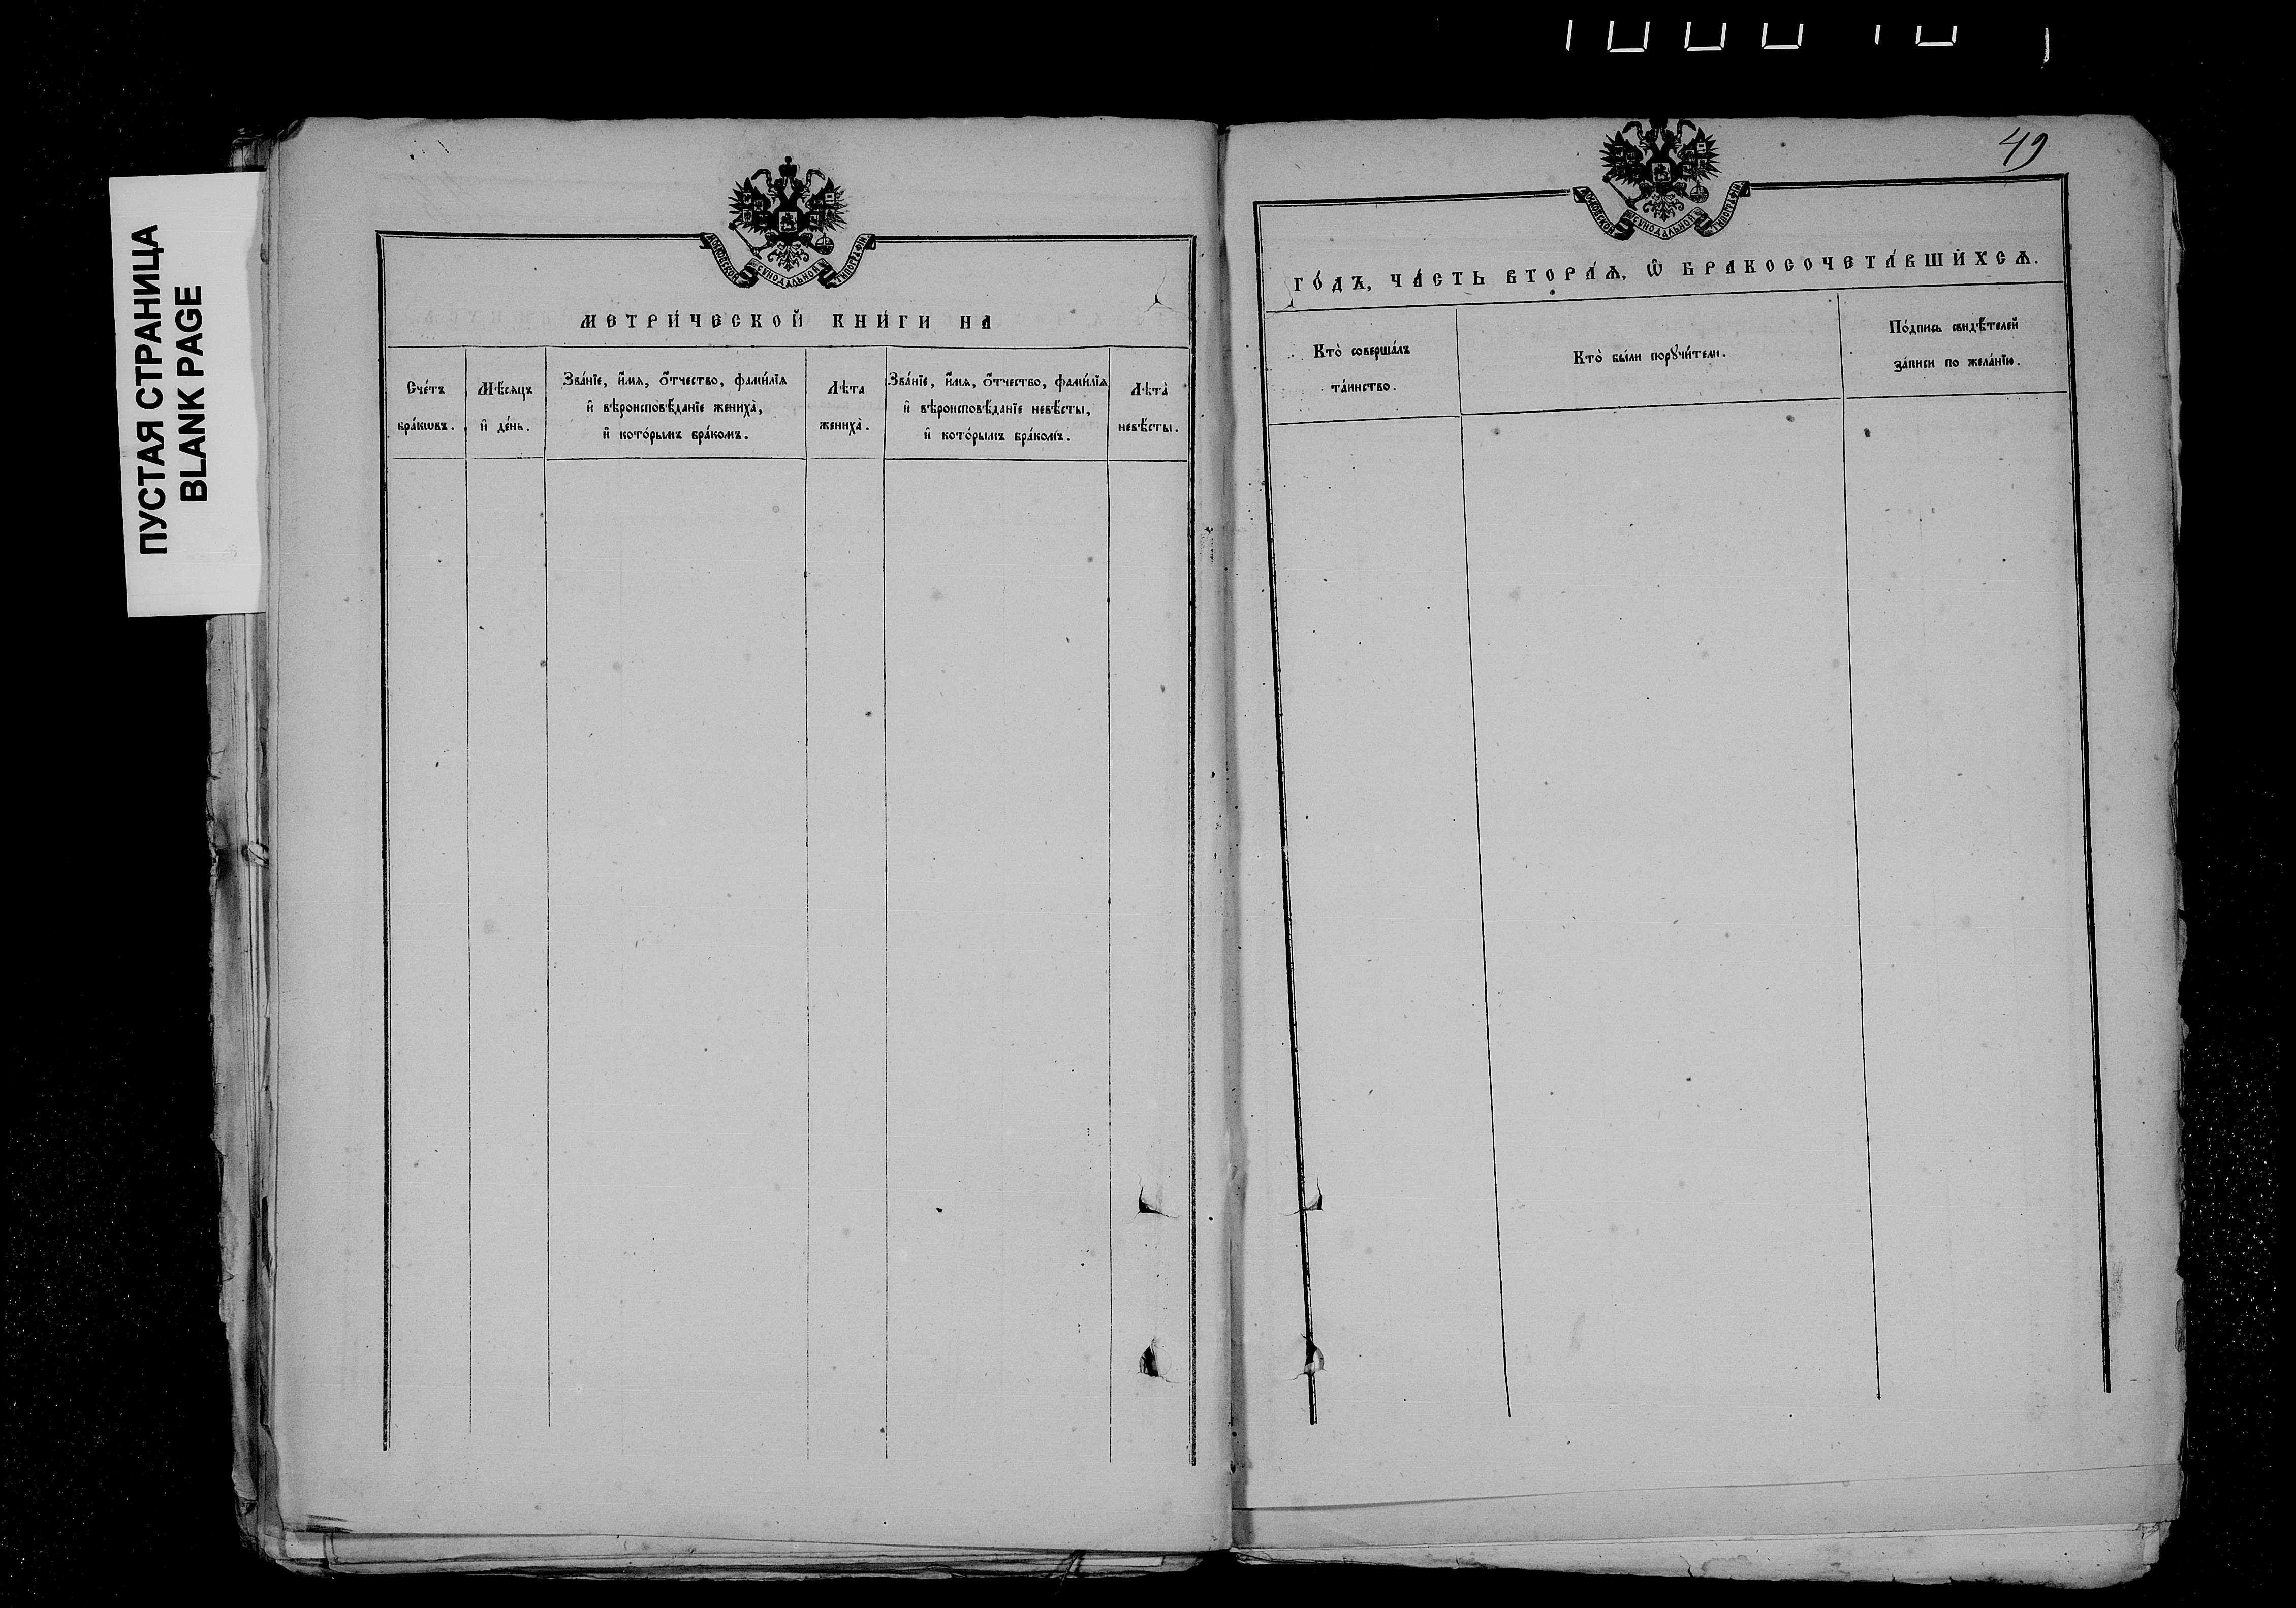 ПУСТАЯ СТРАНИЦА
BLANK PAGE
МОСКОВСКОЙ СѴНОДАЛЬНОЙ ТИПОГРАФІИ
МЕТРИ́ЧЕСКОЙ КНИ́ГИ НА
Сче́тъ
бра́кѡвъ.
Мѣ́сяцъ
и҆ де́нь.
Зва́нїе, и҆́мѧ, ѻ҆́тчество, фамı́лїѧ
и҆ вѣроисповѣ́данїе жениха̀,
и҆ кото́рымъ бра́комъ.
Лѣта
жениха̀.
Зва́нїе, и҆́мѧ, ѻ҆́тчество, фамı́лїѧ
и҆ вѣроисповѣ́данїе невѣ́сты,
и҆ кото́рымъ бра́комъ.
Лѣта̀
невѣ́сты.
49
МОСКОВСКОЙ СѴНОДАЛЬНОЙ ТИПОГРАФІИ
ГО́ДЪ, ЧА́СТЬ ВТОРА́Ѧ, Ѽ БРАКОСОЧЕТА́ВШИХСѦ.
Кто̀ соверша́лъ
та́инство.
Кто̀ бы́ли порꙋчи́тели.
По́дпись свидѣ́телей
за́писи по жела́нїю.